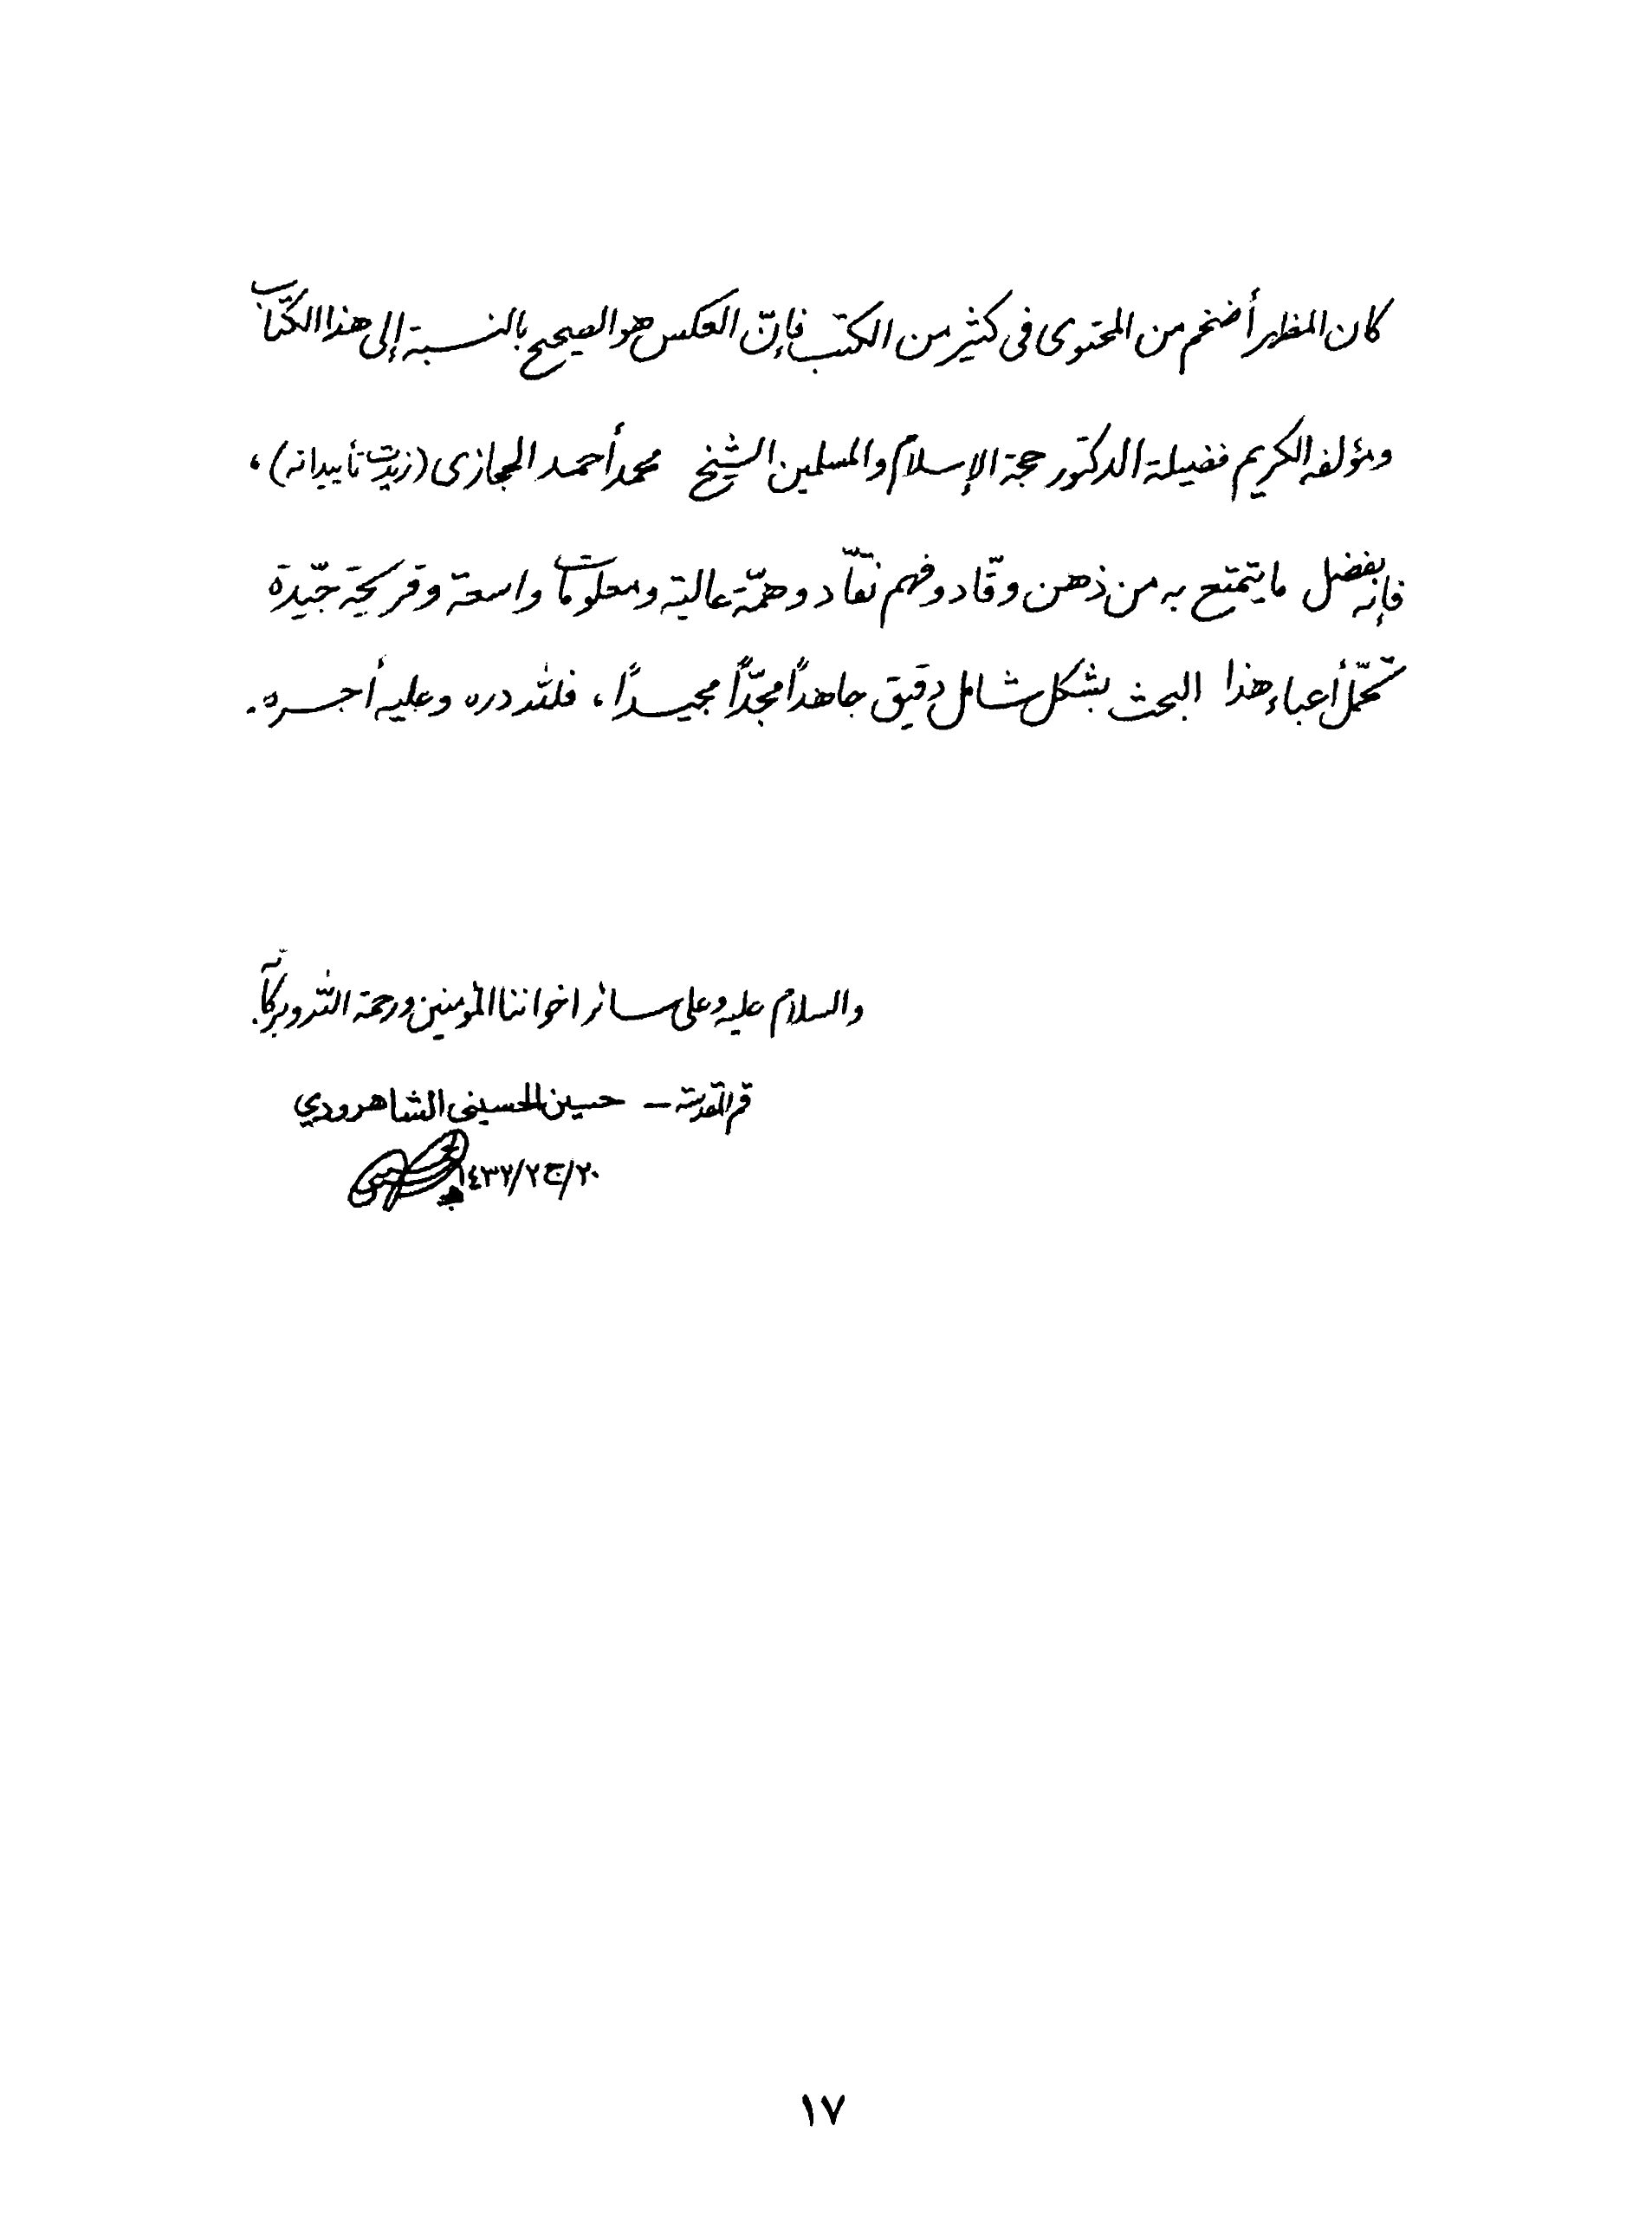 كان المظهر أضخم من المحتوى في كثير من الكتب فإنّ العكس هو الصحيح بالنسبة إلى هذا الكتاب
ومؤلفه الكريم فضيلة الدكتور حجة الإسلام والمسلمين الشيخ محمد أحمد الحجازي (زيدت تأييداته)،
فإنه بفضل ما يتمتع به من ذهن وقّاد وفهم نقّاد وهمّة عالية ومعلومات واسعة وقريحة جيّدة
تحمّل أعباء هذا البحث بشكل شامل دقيق جاهداً مجدّاً مجيداً، فلله دره وعليه أجره.
والسلام عليه وعلى سائر اخواننا المؤمنين ورحمة الله وبركاته
قم المقدسة – حسين الحسيني الشاهرودي
٢٠/ج٢/١٤٣٢
١٧